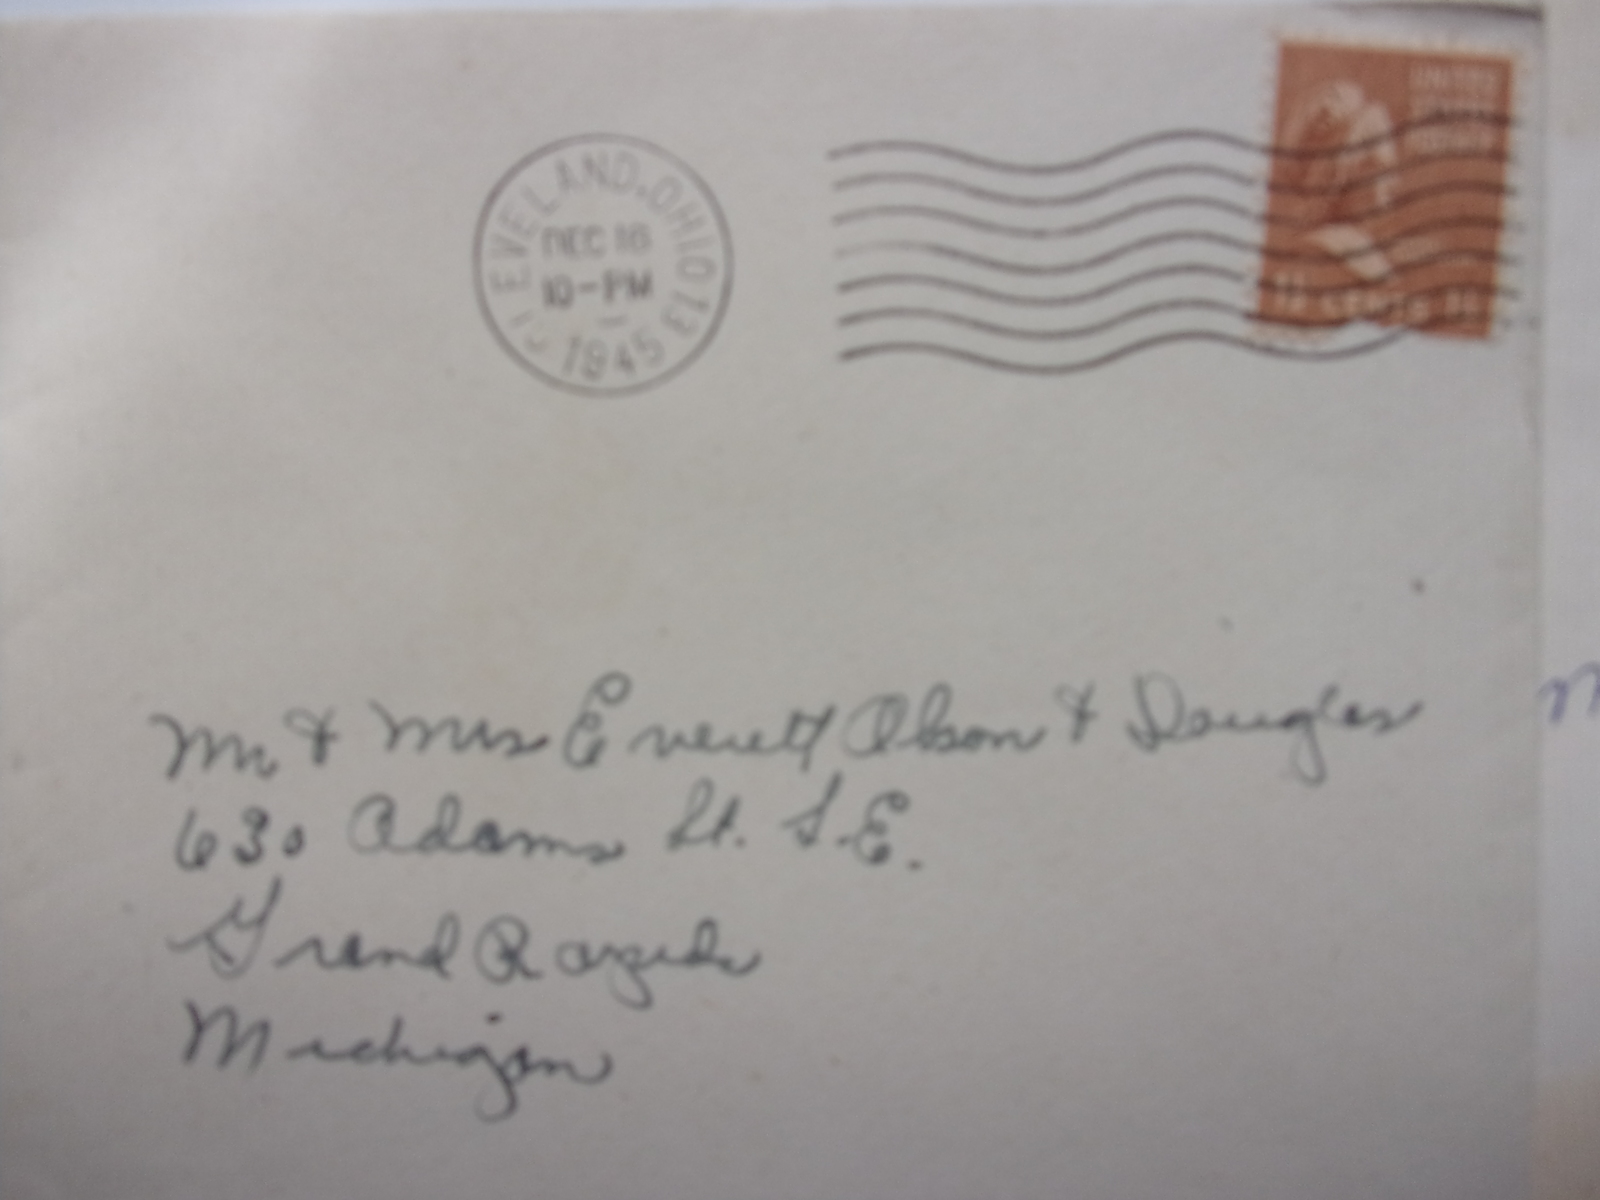 CLEVELAND, OHIO 13
DEC 16
10-PM
1945
UNITED
STATES
CENTS
Mr & Mrs Everett Olson & Douglas
630 Adams St. S.E.
Grand Rapids
Michigan